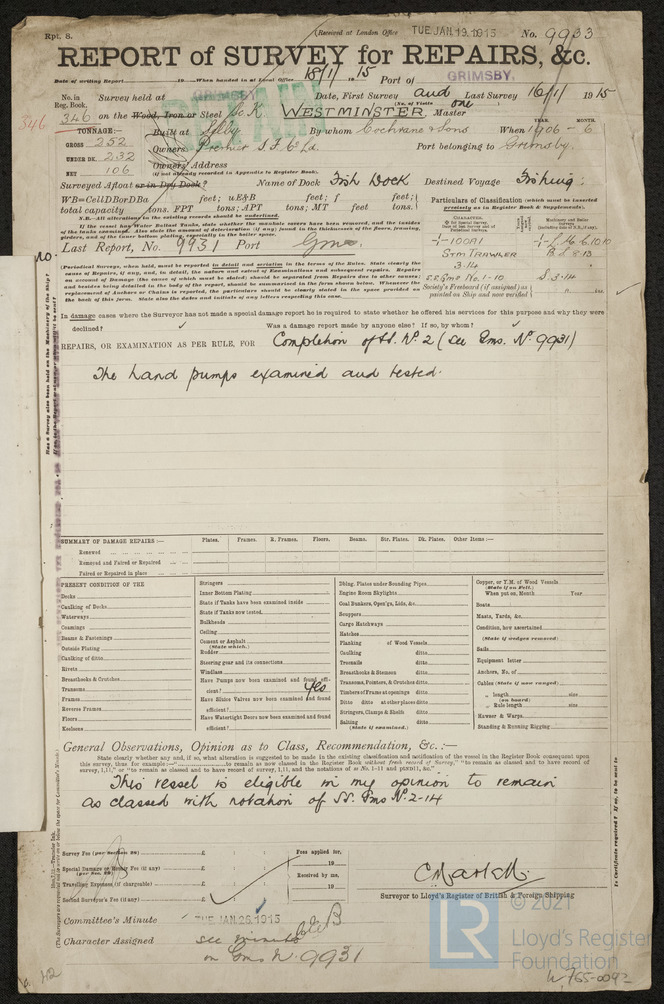 Rpt. 8.
(Received at London Office TUE. JAN. 19. 1915
No. 9933
REPORT of SURVEY for REPAIRS, &c.
Date of writing Report 19 When handed in at Local Office 18/1/ 1915 Port of GRIMSBY.
No. in Reg. Book. Survey held at GRIMSBY Date, First Survey and Last Survey 16/1/ 1915
(No. of Visits one)
346 346 on the Wood, Iron or Steel Sc. K. WESTMINSTER Master
TONNAGE:—
GROSS 252
UNDER DK. 232
NET 106
Built at Selby By whom Cochrane & Sons When 1906 - 6
YEAR. MONTH.
Owners Premier S F Co Ld. Port belonging to Grimsby.
Owners' Address
(if not already recorded in Appendix to Register Book).
Surveyed Afloat or in Dry Dock? Name of Dock Fish Dock Destined Voyage Fishing.
WB=CellDBorDBa feet; uE&B feet; f feet;
total capacity tons. FPT tons; APT tons; MT feet tons.
N.B.—All alterations in the existing records should be underlined.
Particulars of Classification (which must be inserted precisely as in Register Book & Supplements).
Last Report, No. 9931 Port Gms.
100A1
Stm Trawler
3.14
S.S. Gms No. 1-10
LMC 6.10
BS 8.13
S 3.14
Society's Freeboard (if assigned) as painted on Ship and now verified
(Periodical Surveys, when held, must be reported in detail and seriatim in the terms of the Rules. State clearly the cause of Repairs, if any, and, in detail, the nature and extent of Examinations and subsequent repairs. Repairs on account of Damage (the cause of which must be stated) should be separated from Repairs due to other causes; and besides being detailed in the body of the report, should be summarised in the form shown below. Whenever the replacement of Anchors or Chains is reported, the particulars should be clearly stated in the space provided on the back of this form. State also the dates and initials of any letters respecting this case.
In damage cases where the Surveyor has not made a special damage report he is required to state whether he offered his services for this purpose and why they were
declined? Was a damage report made by anyone else? If so, by whom?
REPAIRS, OR EXAMINATION AS PER RULE, FOR Completion of SS. No. 2 (See Gms. No. 9931)
The hand pumps examined and tested.
SUMMARY OF DAMAGE REPAIRS:— Plates. Frames. R. Frames. Floors. Beams. Str. Plates. Dk. Plates. Other Items:—
Renewed
Removed and Faired or Repaired
Faired or Repaired in place
PRESENT CONDITION OF THE
Decks
Caulking of Decks
Waterways
Coamings
Beams & Fastenings
Outside Plating
Caulking of ditto
Rivets
Breasthooks & Crutches
Transoms
Frames
Reverse Frames
Floors
Keelsons
Stringers
Inner Bottom Plating
State if Tanks have been examined inside
State if Tanks now tested
Bulkheads
Ceiling
Cement or Asphalt
(State which.)
Rudder
Steering gear and its connections
Windlass
Have Pumps now been examined and found efficient? Yes
Have Sluice Valves now been examined and found efficient?
Have Watertight Doors now been examined and found efficient?
Dblng. Plates under Sounding Pipes
Engine Room Skylights
Coal Bunkers, Open'gs, Lids, &c.
Scuppers
Cargo Hatchways
Hatches
Planking of Wood Vessels
Caulking ditto
Treenails ditto
Breasthooks & Stemson ditto
Transoms, Pointers, & Crutches ditto
Timbers of Frame at openings ditto
Ditto ditto at other places ditto
Stringers, Clamps & Shelfs ditto
Salting ditto
(State if examined.)
Copper, or Y.M. of Wood Vessels
(State if on Felt.)
When put on, Month Year
Boats
Masts, Yards, &c.
Condition, how ascertained
(State if wedges removed)
Sails
Equipment letter
Anchors, No. of
Cables (State if now ranged)
" length size
(on board)
" Rule length size
Hawser & Warps
Standing & Running Rigging
General Observations, Opinion as to Class, Recommendation, &c. :—
State clearly whether any, and if so, what alteration is suggested to be made in the existing classification and notification of the vessel in the Register Book consequent upon
This vessel is eligible in my opinion to remain
as classed with notation of SS. Gms No. 2-14
Survey Fee (per Section 29) £
Special Damage or Repair Fee (if any) £
(per Sec. 29)
Travelling Expenses (if chargeable) £
Second Surveyor's Fee (if any) £
Fees applied for,
19
Received by me,
19
Surveyor to Lloyd's Register of British & Foreign Shipping
Committee's Minute TUE. JAN. 26. 1915
Character Assigned see minute
on Gms No. 9931
© 2021
LR
Lloyd's Register
Foundation
W765-0092